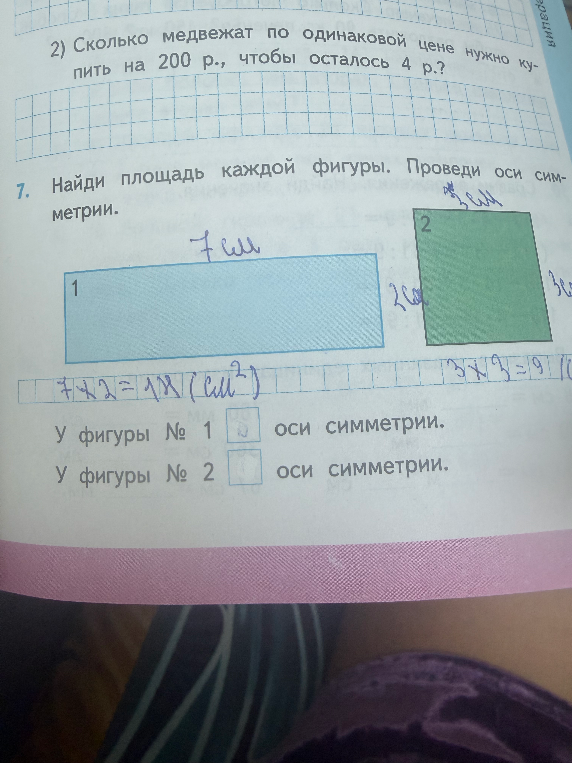 ерация
2) Сколько медвежат по одинаковой цене нужно ку-
пить на 200 р., чтобы осталось 4 р.?
7. Найди площадь каждой фигуры. Проведи оси сим-
метрии.
3 см
7 см
1
2
2 см
3 с
7 × 2 = 14 (см²)
3 × 3 = 9 (с
У фигуры № 1 2 оси симметрии.
У фигуры № 2 оси симметрии.